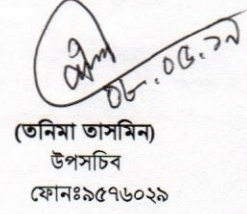 ০৮.০৫.১৯
(তনিমা তাসমিন)
উপসচিব
ফোনঃ৯৫৭৬০২৯